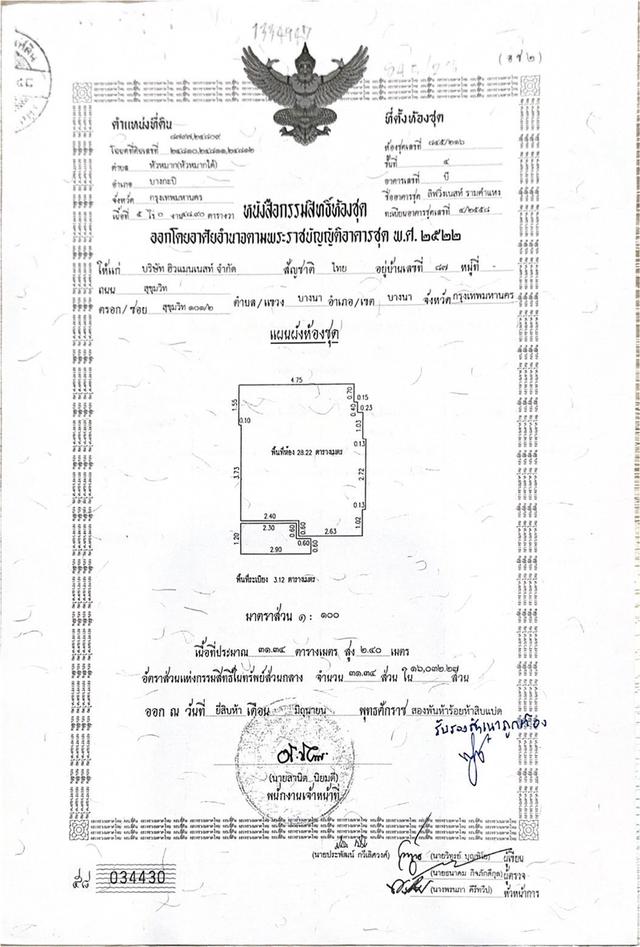 1334947
(อช ๒)
ตำแหน่งที่ดิน
โฉนดที่ดินเลขที่ ๒๔๘๑๐,๒๔๘๑๑,๒๔๘๑๒
ตำบล หัวหมาก(หัวหมากใต้)
อำเภอ บางกะปิ
จังหวัด กรุงเทพมหานคร
เนื้อที่ ๕ ไร่ ๐ งาน ตารางวา
ที่ตั้งห้องชุด
ห้องชุดเลขที่ ๘๔๕/๒๑๖
ชั้นที่ ๔
อาคารเลขที่ บี
ชื่ออาคารชุด ลิฟวิ่งเนสท์ รามคำแหง
ทะเบียนอาคารชุดเลขที่ ๔/๒๕๕๘
หนังสือกรรมสิทธิ์ห้องชุด
ออกโดยอาศัยอำนาจตามพระราชบัญญัติอาคารชุด พ.ศ. ๒๕๒๒
ให้แก่ บริษัท ฮิวแมนเนสท์ จำกัด สัญชาติ ไทย อยู่บ้านเลขที่ ๘๗ หมู่ที่ -
ถนน สุขุมวิท
ตรอก/ซอย สุขุมวิท ๑๐๑/๒ ตำบล/แขวง บางนา อำเภอ/เขต บางนา จังหวัด กรุงเทพมหานคร
แผนผังห้องชุด
4.75
0.70
0.15
1.55
0.40
0.23
0.10
1.03
0.13
พื้นที่ห้อง 28.22 ตารางเมตร
3.73
2.72
0.13
2.40
1.02
2.30
0.60
0.60
2.63
1.20
0.60
0.60
2.90
พื้นที่ระเบียง 3.12 ตารางเมตร
มาตราส่วน ๑: ๑๐๐
เนื้อที่ประมาณ ๓๑.๓๔ ตารางเมตร สูง ๒.๔๐ เมตร
อัตราส่วนแห่งกรรมสิทธิ์ในทรัพย์ส่วนกลาง จำนวน ๓๑.๓๔ ส่วน ใน ๑๖,๐๓๒.๒๗ ส่วน
ออก ณ วันที่ ยี่สิบห้า เดือน มิถุนายน พุทธศักราช สองพันห้าร้อยห้าสิบแปด
รับรองสำเนาถูกต้อง
(นายสานิต นิยมดี)
พนักงานเจ้าหน้าที่
(นายประพัฒน์ กวีเลิศวงศ์)
(นายวิฑูรย์ บุญพิโย) ผู้เขียน
(นายธนาคม กิจภักดีกุล) ผู้ตรวจ
(นางพรนภา คีรีทวีป) หัวหน้าการ
๕๘ 034430